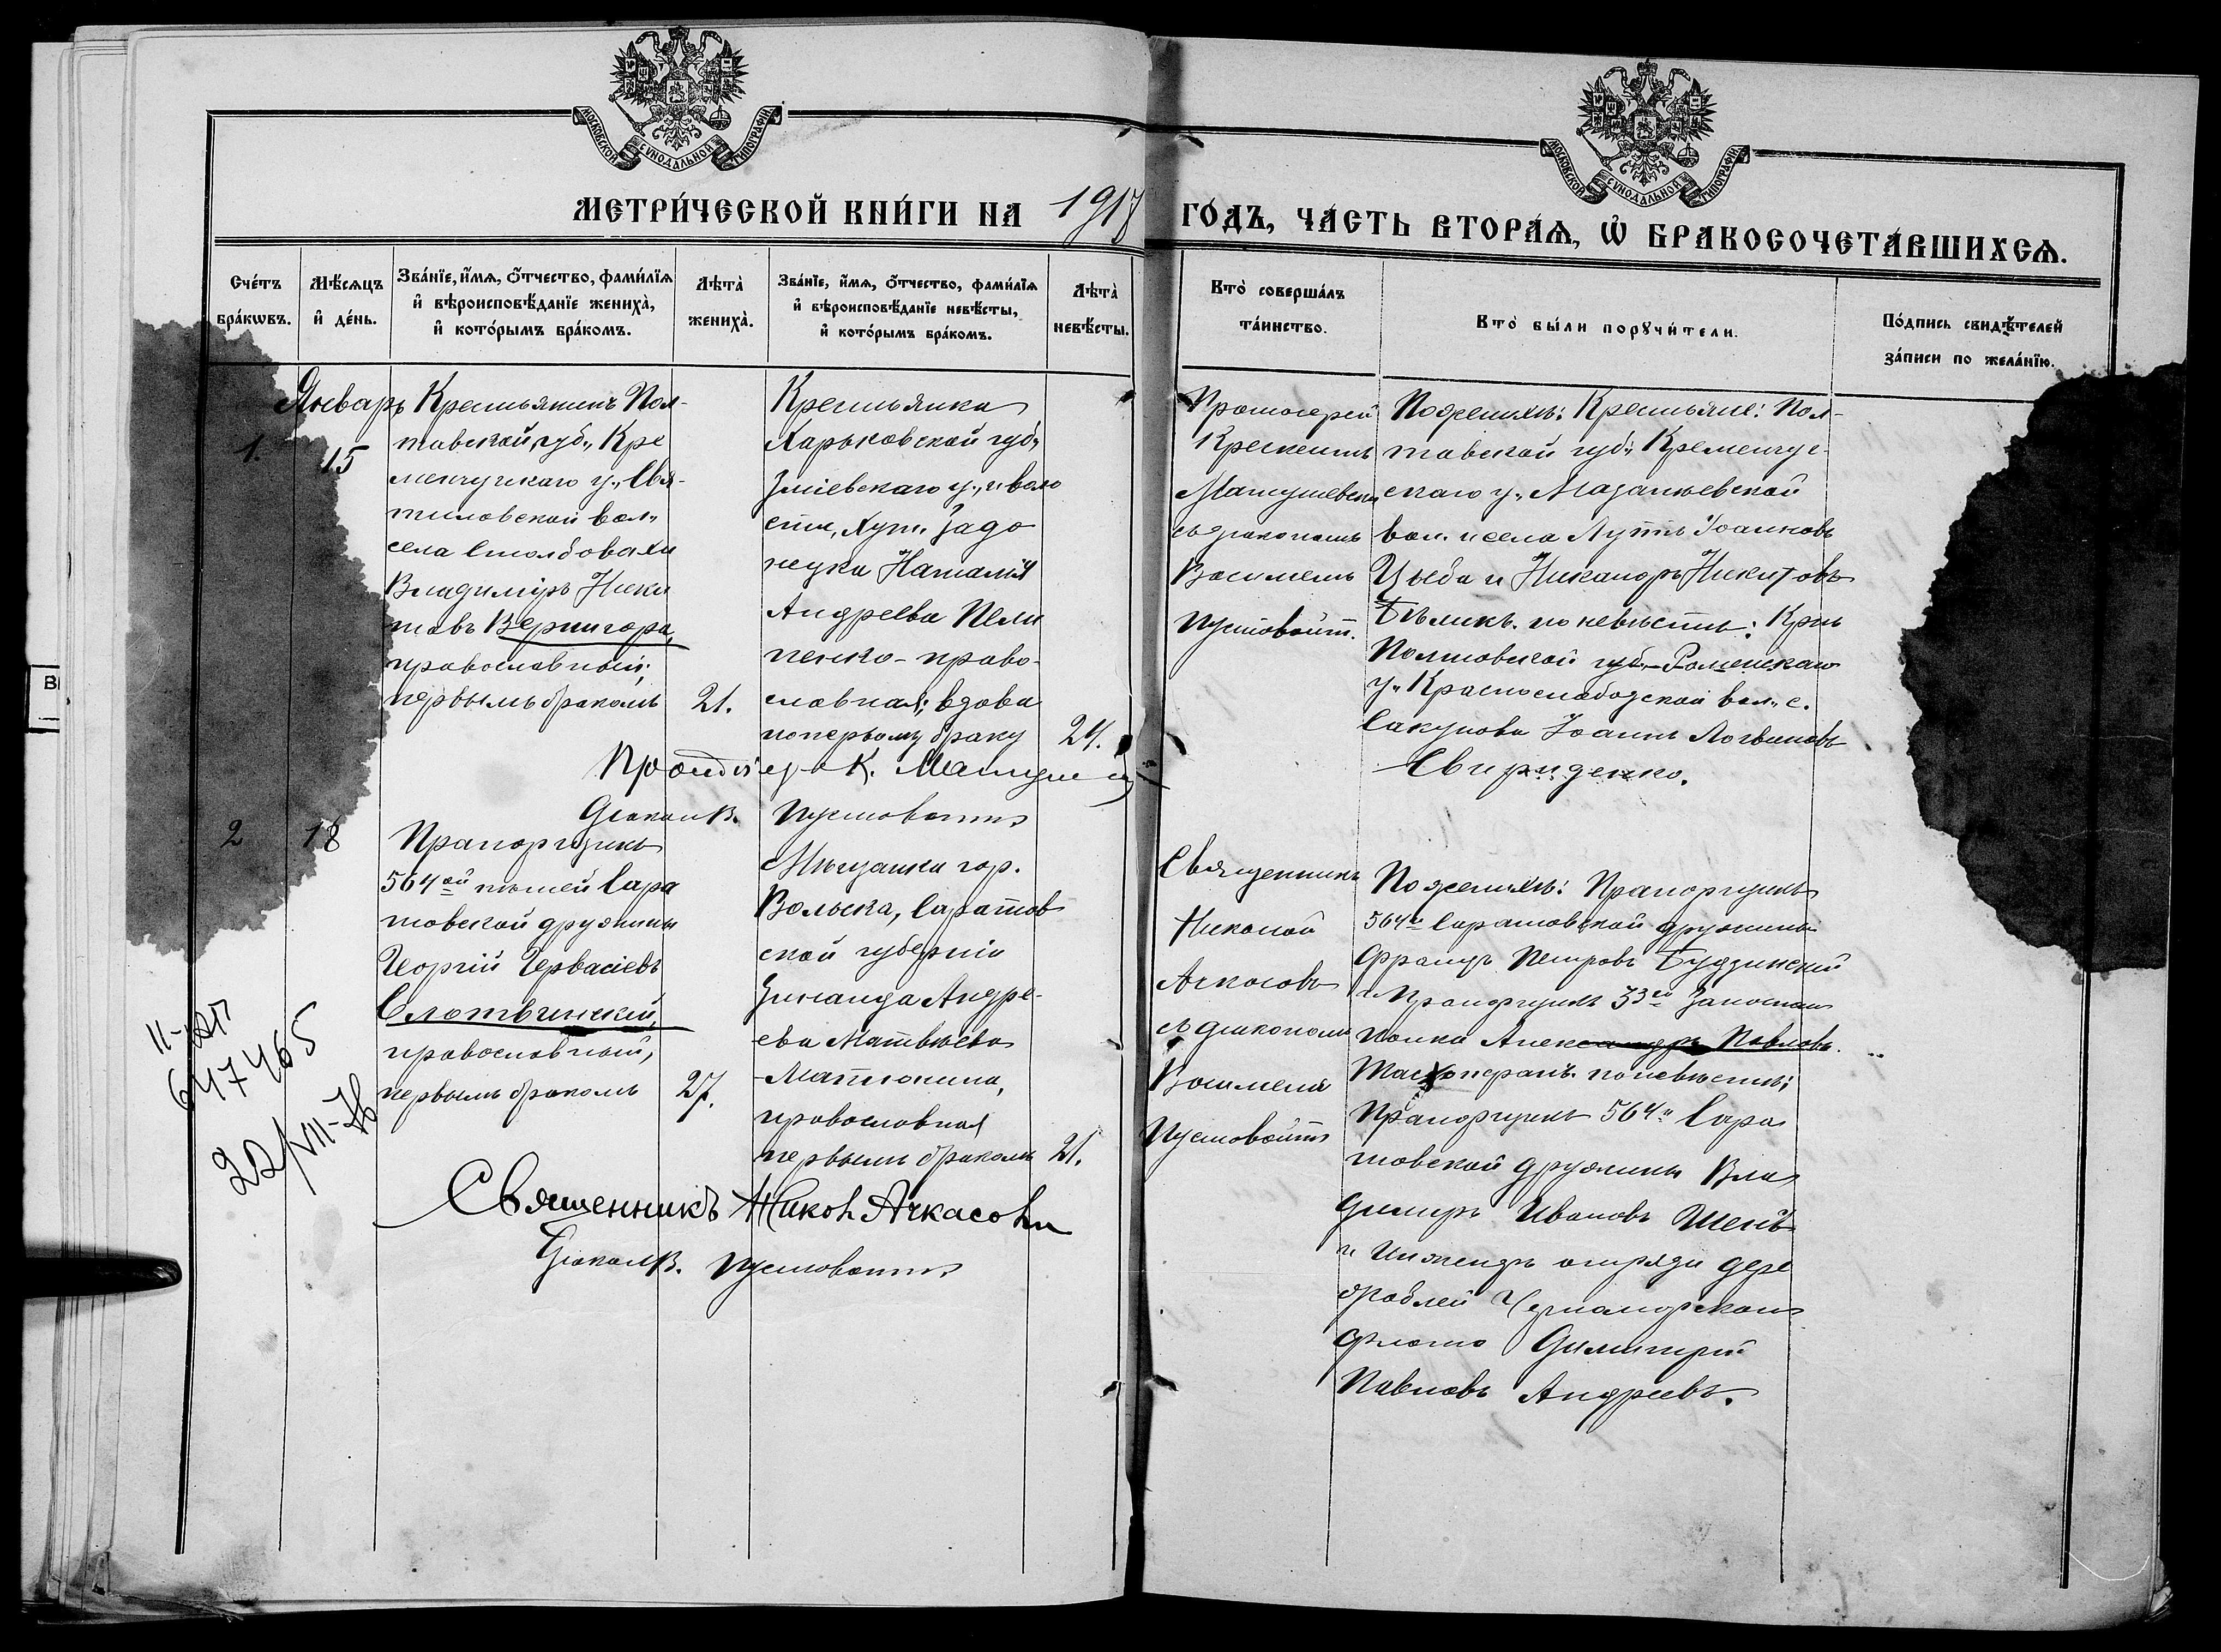 МОСКОВСКОЙ СѴНОДАЛЬНОЙ ТИПОГРАФІИ
МОСКОВСКОЙ СѴНОДАЛЬНОЙ ТИПОГРАФІИ
МЕТРИ́ЧЕСКОЙ КНИ́ГИ НА 1917 ГО́ДЪ, ЧА́СТЬ ВТОРА́Ѧ, Ѡ҆ БРАКОСОЧЕТА́ВШИХСѦ.
Сче́тъ бра́кѡвъ.
Мѣ́сѧцъ и҆ де́нь.
Зва́нїе, и҆́мѧ, ѻ҆́тчество, фами́лїѧ
и҆ вѣроисповѣ́данїе жениха̀,
и҆ кото́рымъ бра́комъ.
Лѣта̀ жениха̀.
Зва́нїе, и҆́мѧ, ѻ҆́тчество, фами́лїѧ
и҆ вѣроисповѣ́данїе невѣ́сты,
и҆ кото́рымъ бра́комъ.
Лѣта̀ невѣ́сты.
Кто̀ соверша́лъ
та́инство.
Кто̀ бы́ли порꙋчи́тели.
По́дпись свидѣ́телей
за́писи по жела́нїю.
Январь
1.
15
Крестьянинъ Пол-
тавской губ., Кре
менчугскаго у.,
вол.,
села Столбовахи
Владиміръ Ники
товъ Вернигора,
православный;
первымъ бракомъ
21.
Крестьянка
Харьковской губ.,
Зміевскаго у., и воло
сти, Хут. Задо
нецка Наталія
Андреева Пели
пенко - право-
славная; вдова
по первому браку
24.
Протоіерей
Крескентъ
съ діакономъ
Василіемъ
Пустовойтъ.
По женихѣ: Крестьяне: Пол-
тавской губ., Кременчуг-
скаго у.,
вол. и села Іоанновъ
Цыба и Никаноръ Никитовъ
Бѣликъ. по невѣстѣ: Кр-нъ
Полтавской губ. Роменскаго
у. Краснослободской вол., с.
Сакунова Іоаннъ Логвиновъ
Свириденко.
К.
Діаконъ В. Пустовойтъ
2
18
Прапорщикъ
564ой пѣшей Сара
товской дружины
Георгій Гервасіевъ
Слотвинскій,
православный,
первымъ бракомъ
27.
Мѣщанка гор.
Вольска, Саратов
ской губерніи
Зинаида Андре-
ева Матвѣева
-Матюнина,
православная
первымъ бракомъ
21.
Священникъ
Никонъ
Ачкасовъ
съ діакономъ
Василіемъ
Пустовойтъ
По женихѣ: Прапорщикъ
564й Саратовской дружины
Францъ Петровъ Будзинскій
и Прапорщикъ 33го Запаснаго
полка Александръ Павловъ.
по невѣстѣ:
Прапорщикъ 564й Сара
товской дружины Вла
диміръ Ивановъ Шенъ
и отряда
Черноморскаго
флота Димитрій
Павловъ Андреевъ.
Священникъ Никонъ Ачкасовъ
Діаконъ В. Пустовойтъ
647465
22/VIII-76